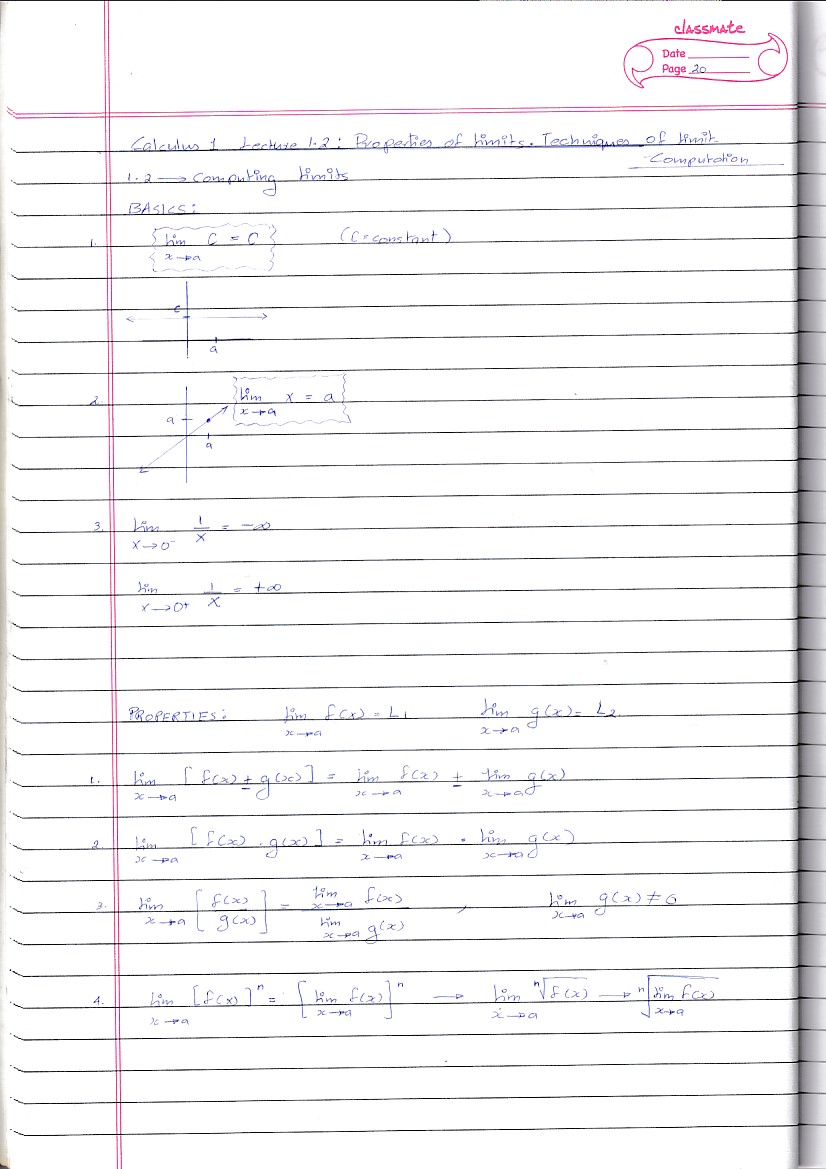 classmate
Date
Page 20
Calculus 1 Lecture 1.2: Properties of limits. Techniques of limit
Computation
1.2 → Computing limits
BASICS:
1. lim x→a C = C (C = constant)
c
a
2. lim x→a x = a
a
a
3. lim x→0⁻ 1/x = -∞
lim x→0⁺ 1/x = +∞
PROPERTIES: lim x→a f(x) = L₁ lim x→a g(x) = L₂
1. lim x→a [f(x) ± g(x)] = lim x→a f(x) ± lim x→a g(x)
2. lim x→a [f(x) · g(x)] = lim x→a f(x) · lim x→a g(x)
3. lim x→a [f(x)/g(x)] = lim x→a f(x) / lim x→a g(x) , lim x→a g(x) ≠ 0
4. lim x→a [f(x)]ⁿ = [lim x→a f(x)]ⁿ → lim x→a ⁿ√f(x) → ⁿ√lim x→a f(x)